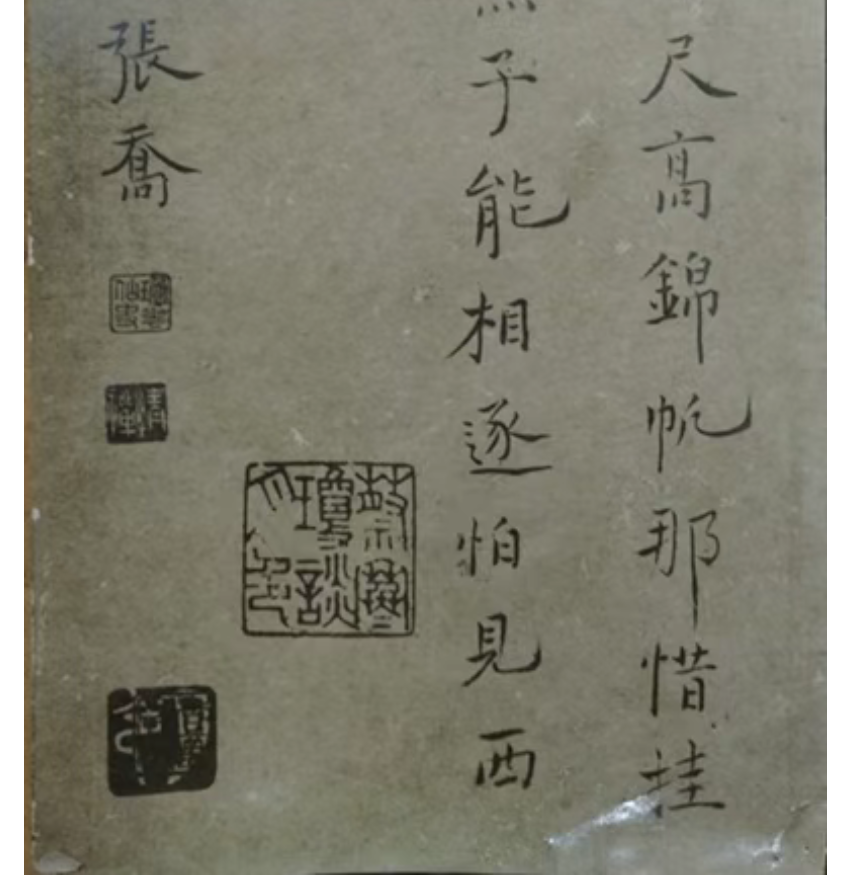 尺高錦帆那惜挂
子能相逐怕見西
張喬